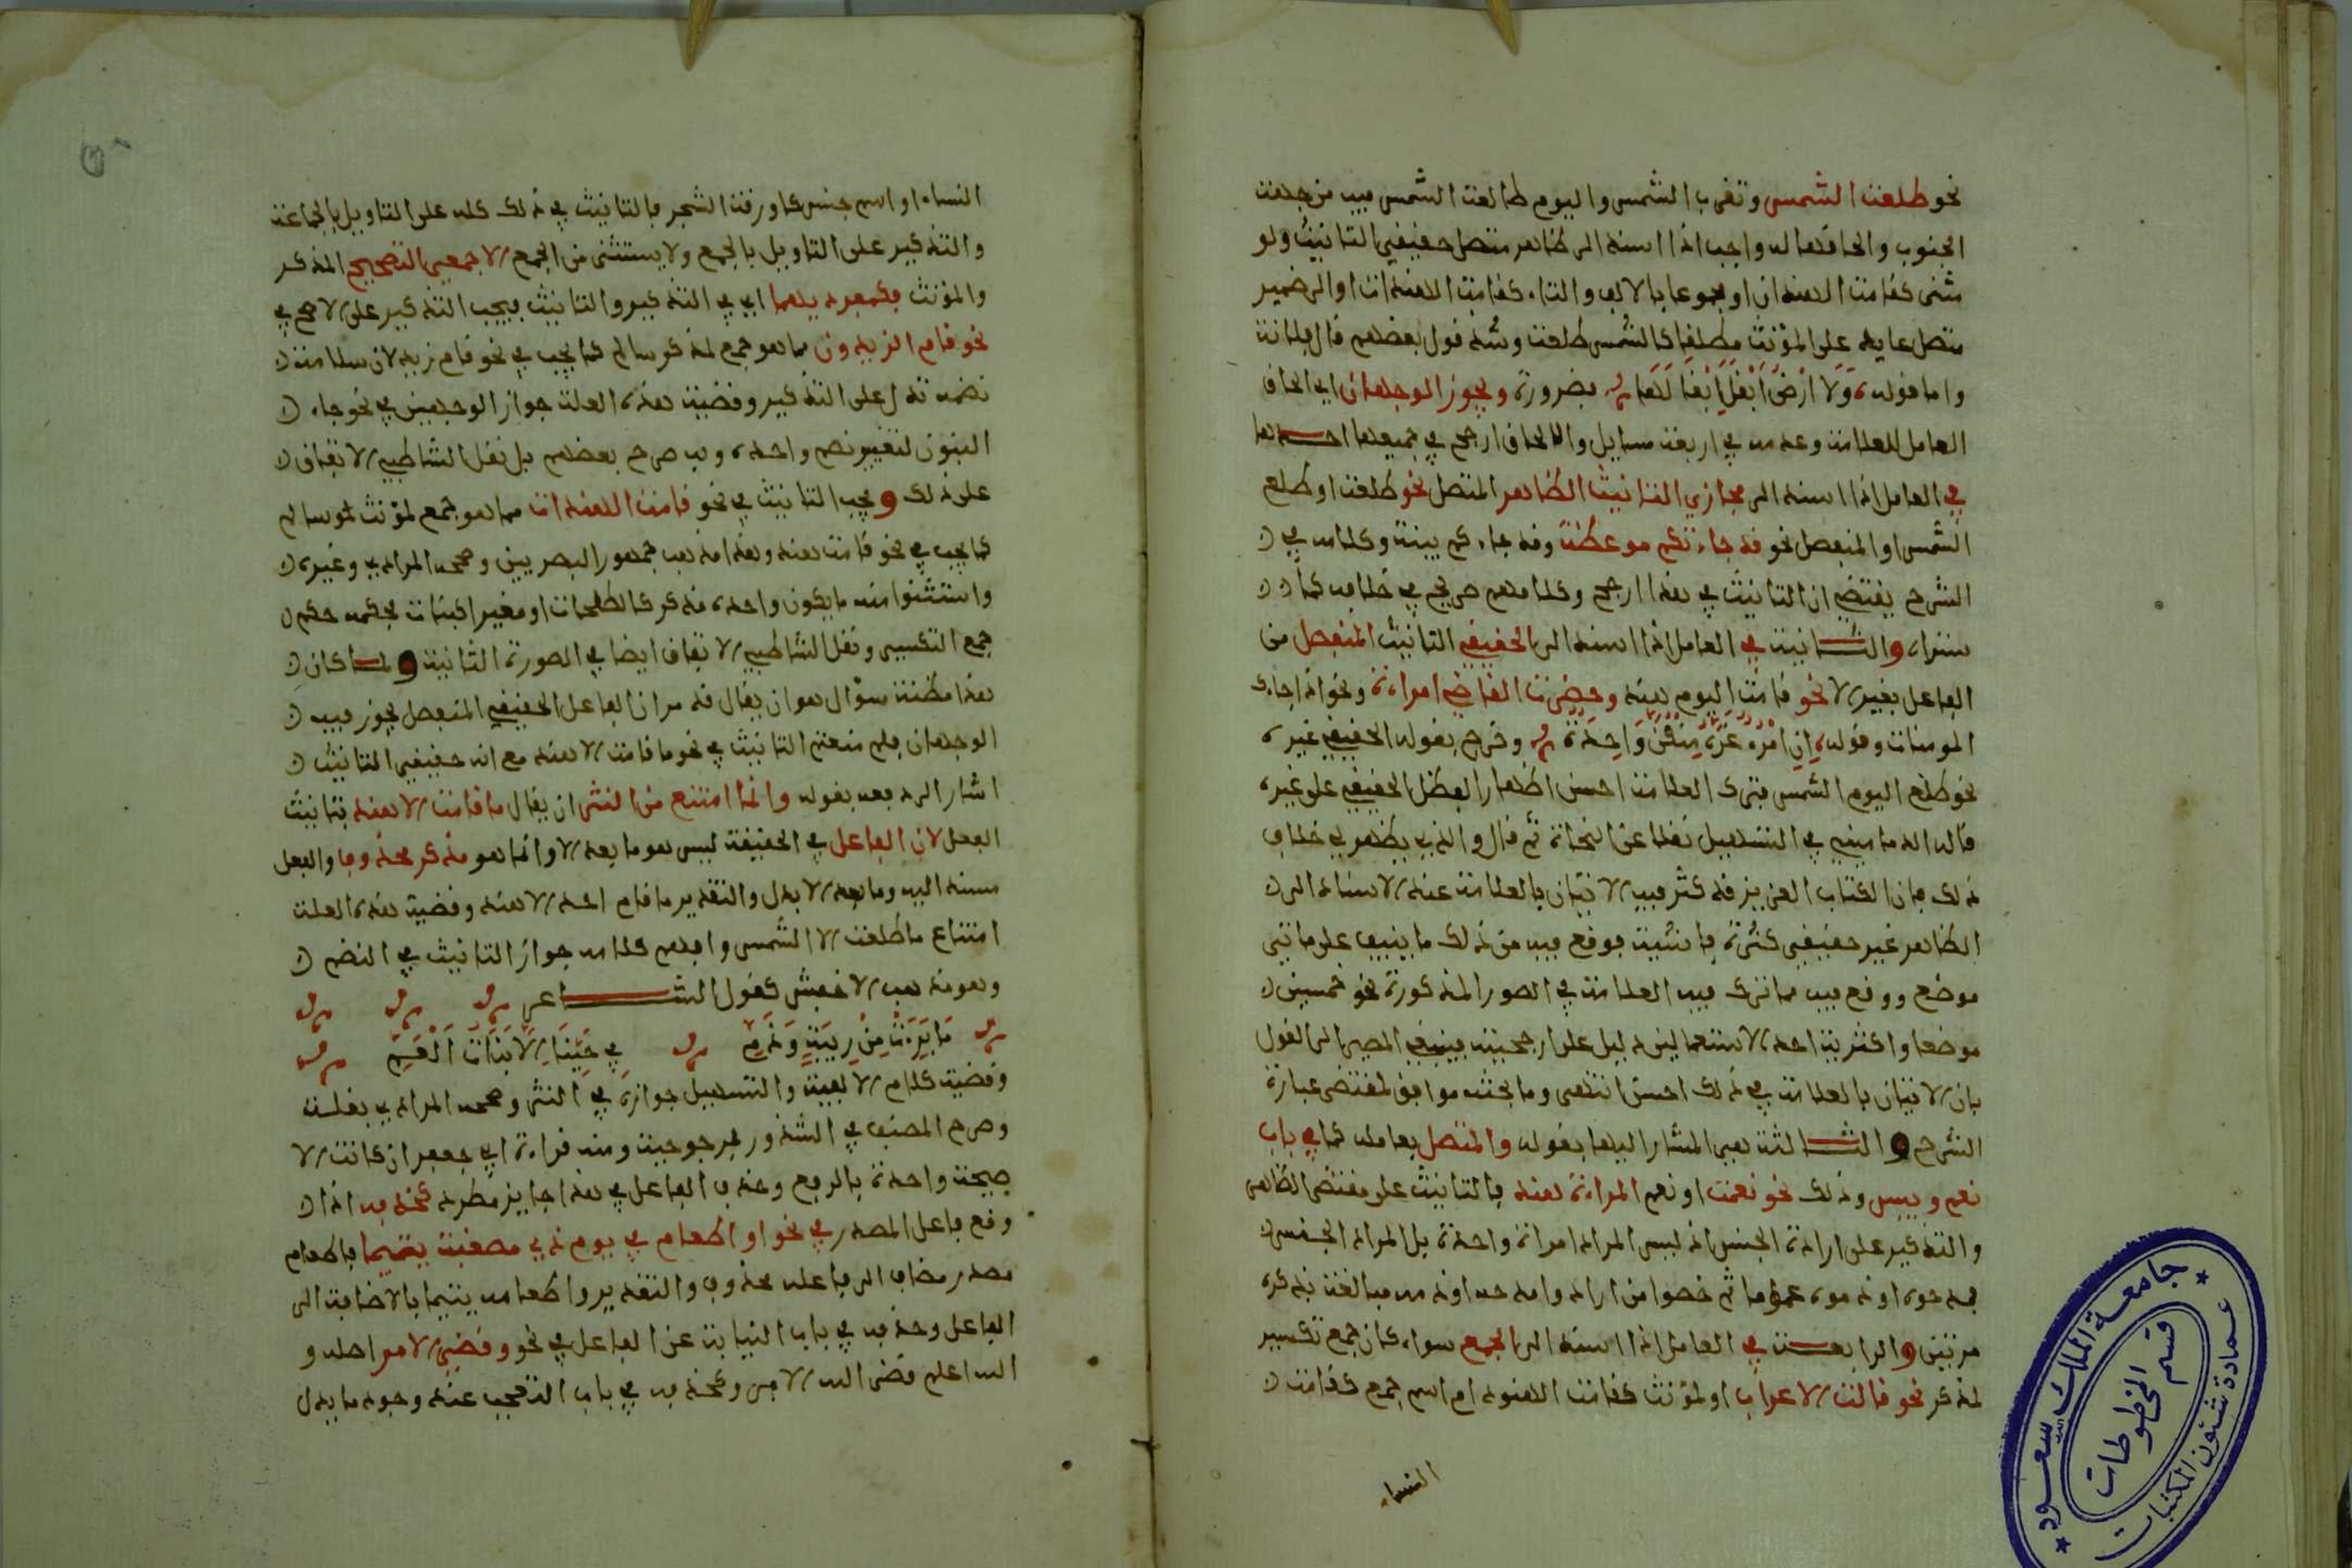 نحو طلعت الشمس وتغرب الشمس واليوم طالعت الشمس فيه من جهت
الجنوب والحاقها له واجب اذا اسند الى ظاهر متصل حقيقي التانيث ولو
مثنى كقامت الهندان او مجموعا بالالف والتاء كقامت الهندات او الى ضمير
متصل عايد على المؤنث مطلقا كالشمس طلعت وشذ قول بعضهم قال فلانة
واما قوله وَلَا ارْضَ أَبْقَلَ إبْقَالَهَا فضرورة ويجوز الوجهان اي الحاق
العامل للعلامة وعدمه في اربعة مسايل والالحاق ارجح في جميعها احدها
في العامل اذا اسند الى مجازي التانيث الظاهر المتصل نحو طلعت او طلع
الشمس او المنفصل نحو قد جاءتكم موعظة وقد جاءكم بينة وكلامه في
الشرح يقتضي ان التانيث في هذا ارجح وكلامهم صريح في خلافه كما
ستراه والثانية في العامل اذا اسند الى الحقيقي التانيث المنفصل من
العامل بغير الا نحو قامت اليوم هند وحضرت القاضي امراءة ونحو اذا جاءك
المومنات وقوله إنِ امْرُءٌ غَرَّهُ مِنْكُنَّ وَاحِدَةٌ وخرج بقوله الحقيقي غيره
نحو طلع اليوم الشمس فترك العلامة احسن اظهارا لفضل الحقيقي على غيره
قاله الدماميني في التسهيل نقلا عن النحاة ثم قال والذي يظهر لي خلاف
ذلك فان الكتاب العزيز قد كثر فيه الاتيان بالعلامة عند الاسناد الى
الظاهر غير حقيقي كثرة فاشية فوقع فيه من ذلك ما ينيف على مايتي
موضع ووقع فيه مما ترك فيه العلامة في الصور المذكورة نحو خمسين
موضعا واكثرية احد الاستعمالين دليل على ارجحيته فينبغي المصير الى القول
بان الاتيان بالعلامة في ذلك احسن انتهى وما بحثه موافق لمقتضى عبارة
الشرح والثالثة هي المشار اليها بقوله والمتصل بعامله كما في باب
نعم وبيس وذلك نحو نعمت او نعم المراءة هند فالتانيث على مقتضى الظاهر
والتذكير على ارادة الجنس اذ ليس المراد امراة واحدة بل المراد الجنس
فمدحوه او ذموه عموما ثم خصوا من ارادوا مدحه او ذمه مبالغة بذكره
مرتين والرابعة في العامل اذا اسند الى الجمع سواء كان جمع تكسير
لمذكر نحو قالت الاعراب او لمؤنث كقامت الهنود ام اسم جمع كقامت
النساء
النساء او اسم جنس كاورقت الشجر فالتانيث في ذلك كله على التاويل بالجماعة
والتذكير على التاويل بالجمع ولا يستثنى من الجمع الا جمعي التصحيح المذكر
والمؤنث فكمفرديهما اي في التذكير والتانيث فيجب التذكير على الاصح في
نحو قام الزيدون مما هو جمع لمذكر سالم كما يجب في نحو قام زيد لان سلامة
نضمه تدل على التذكير وقضية هذه العلة جواز الوجهين في نحو جاء
البنون لتغيير نضم واحده وبه صرح بعضهم بل نقل الشاطبي الاتفاق
على ذلك ويجب التانيث في نحو قامت الهندات مما هو جمع لمؤنث سالم
كما يجب في نحو قامت هند وهذا مذهب جمهور البصريين وصححه المرادي وغيره
واستثنوا منه ما يكون واحده مذكر كالطلحات او مغيرا كبنات فحكمه حكم
جمع التكسير ونقل الشاطبي الاتفاق ايضا في الصورة الثانية ولما كان
هذا مظنة سؤال هو ان يقال قد مر ان الفاعل الحقيقي المنفصل يجوز فيه
الوجهان فلم منعتم التانيث في نحو ما قامت الا هند مع انه حقيقي التانيث
اشار الى دفعه بقوله وانما امتنع من النثر ان يقال ما قامت الا هند بتانيث
الفعل لان الفاعل في الحقيقة ليس هو ما بعد الا وانما هو مذكر محذوف والفعل
مسند اليه وما بعد الا بدل والتقدير ما قام احد الا هند وقضية هذه العلة
امتناع ما طلعت الا الشمس وافهم كلامه جواز التانيث في النضم
وهو مذهب الاخفش كقول الشاعر
مَا بَرِءَتْ مِنْ رِيبَةٍ وَذَمِّ في حَرْبِنَا إلَّا بَنَاتُ الْعَمِّ
وقضية كلام الالفية والتسهيل جوازه في النثر وصححه المرادي بقلة
وصرح المصنف في الشذور بمرجوحية ومنه قراءة ابي جعفر ان كانت الا
صيحة واحدة بالرفع وحذف الفاعل في هذا جايز مطرد كحذفه اذا
وقع فاعل المصدر في نحو او اطعام في يوم ذي مسغبة يتيما فاطعام
مصدر مضاف الى فاعله محذوف والتقدير او اطعامه يتيما بالاضافة الى
الفاعل وحذفه في باب النيابة عن الفاعل في نحو وقضي الامر اصله و
الله اعلم قضى الله الامر وكحذفه في باب التعجب عند وجود ما يدل
جامعة الملك سعود
عمادة شئون المكتبات
قسم المخطوطات